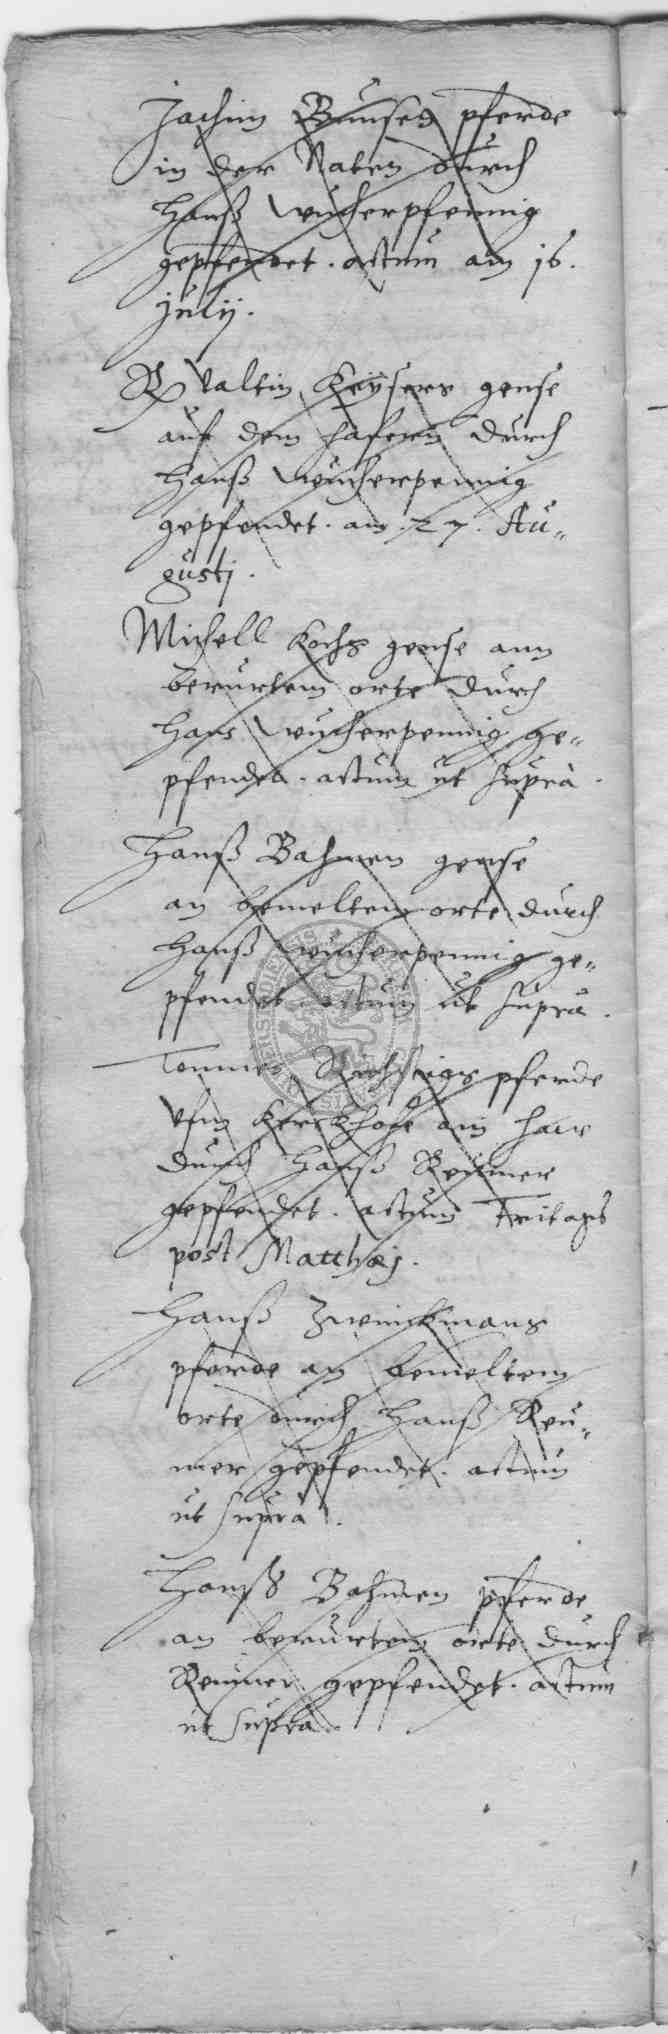 Jachim Bunsen pferde
in der Naten durch
Hanß Wucherpfennig
gepfendet. actum am 16.
Julij.
Valtin Keysers gense
auf dem hafern durch
Hanß Wucherpennig
gepfendet. am. 27. Au„
gustj.
Michell Kochs gense ann
berurtem orte durch
Hans Wucherpennig ge„
pfendet. actum ut supra.
Hanß Bahmen gense
an bemeltem orte durch
Hanß Wucherpennig ge„
pfendet actum ut supra.
Tonnies pferde
Ufm Kerckhofe am
durch Hanß Reumer
gepfendet. actum Freitags
post Matthæj.
Hanß Zwinckmans
pferde an bemeltem
orte durch Hanß Reu„
mer gepfendet. actum
ut supra.
Hanß Bahmen pferde
an berurtem orte durch
Reumer gepfendet. actum
ut supra.